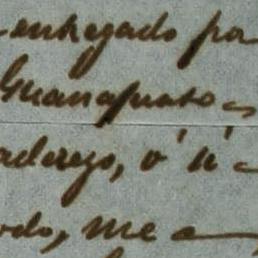 entregado po
Guanajuato
aderezo, ó ú
odo, me a